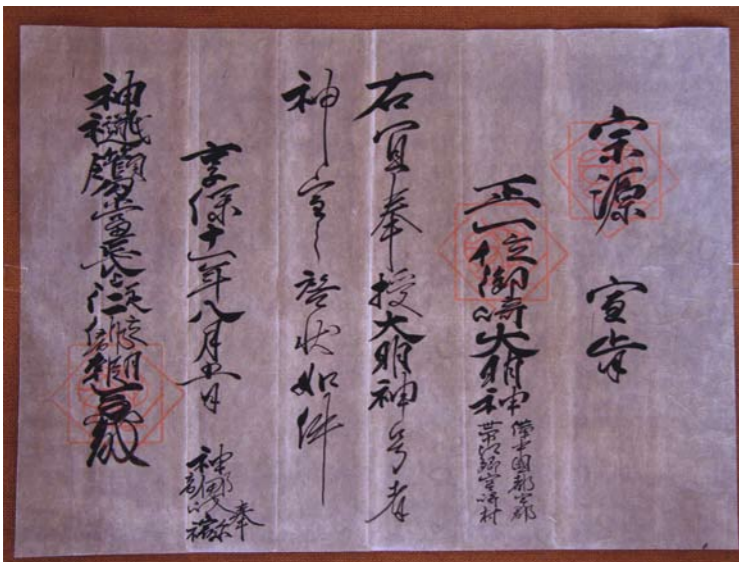 宗源 宣旨
正一位御崎大明神
備中国都宇郡
帯江郷宮崎村
右宜奉授大明神号者
神宣之啓状如件
享保十一年八月五日
神部 奉
神祇管領勾當長上従二位卜部朝臣